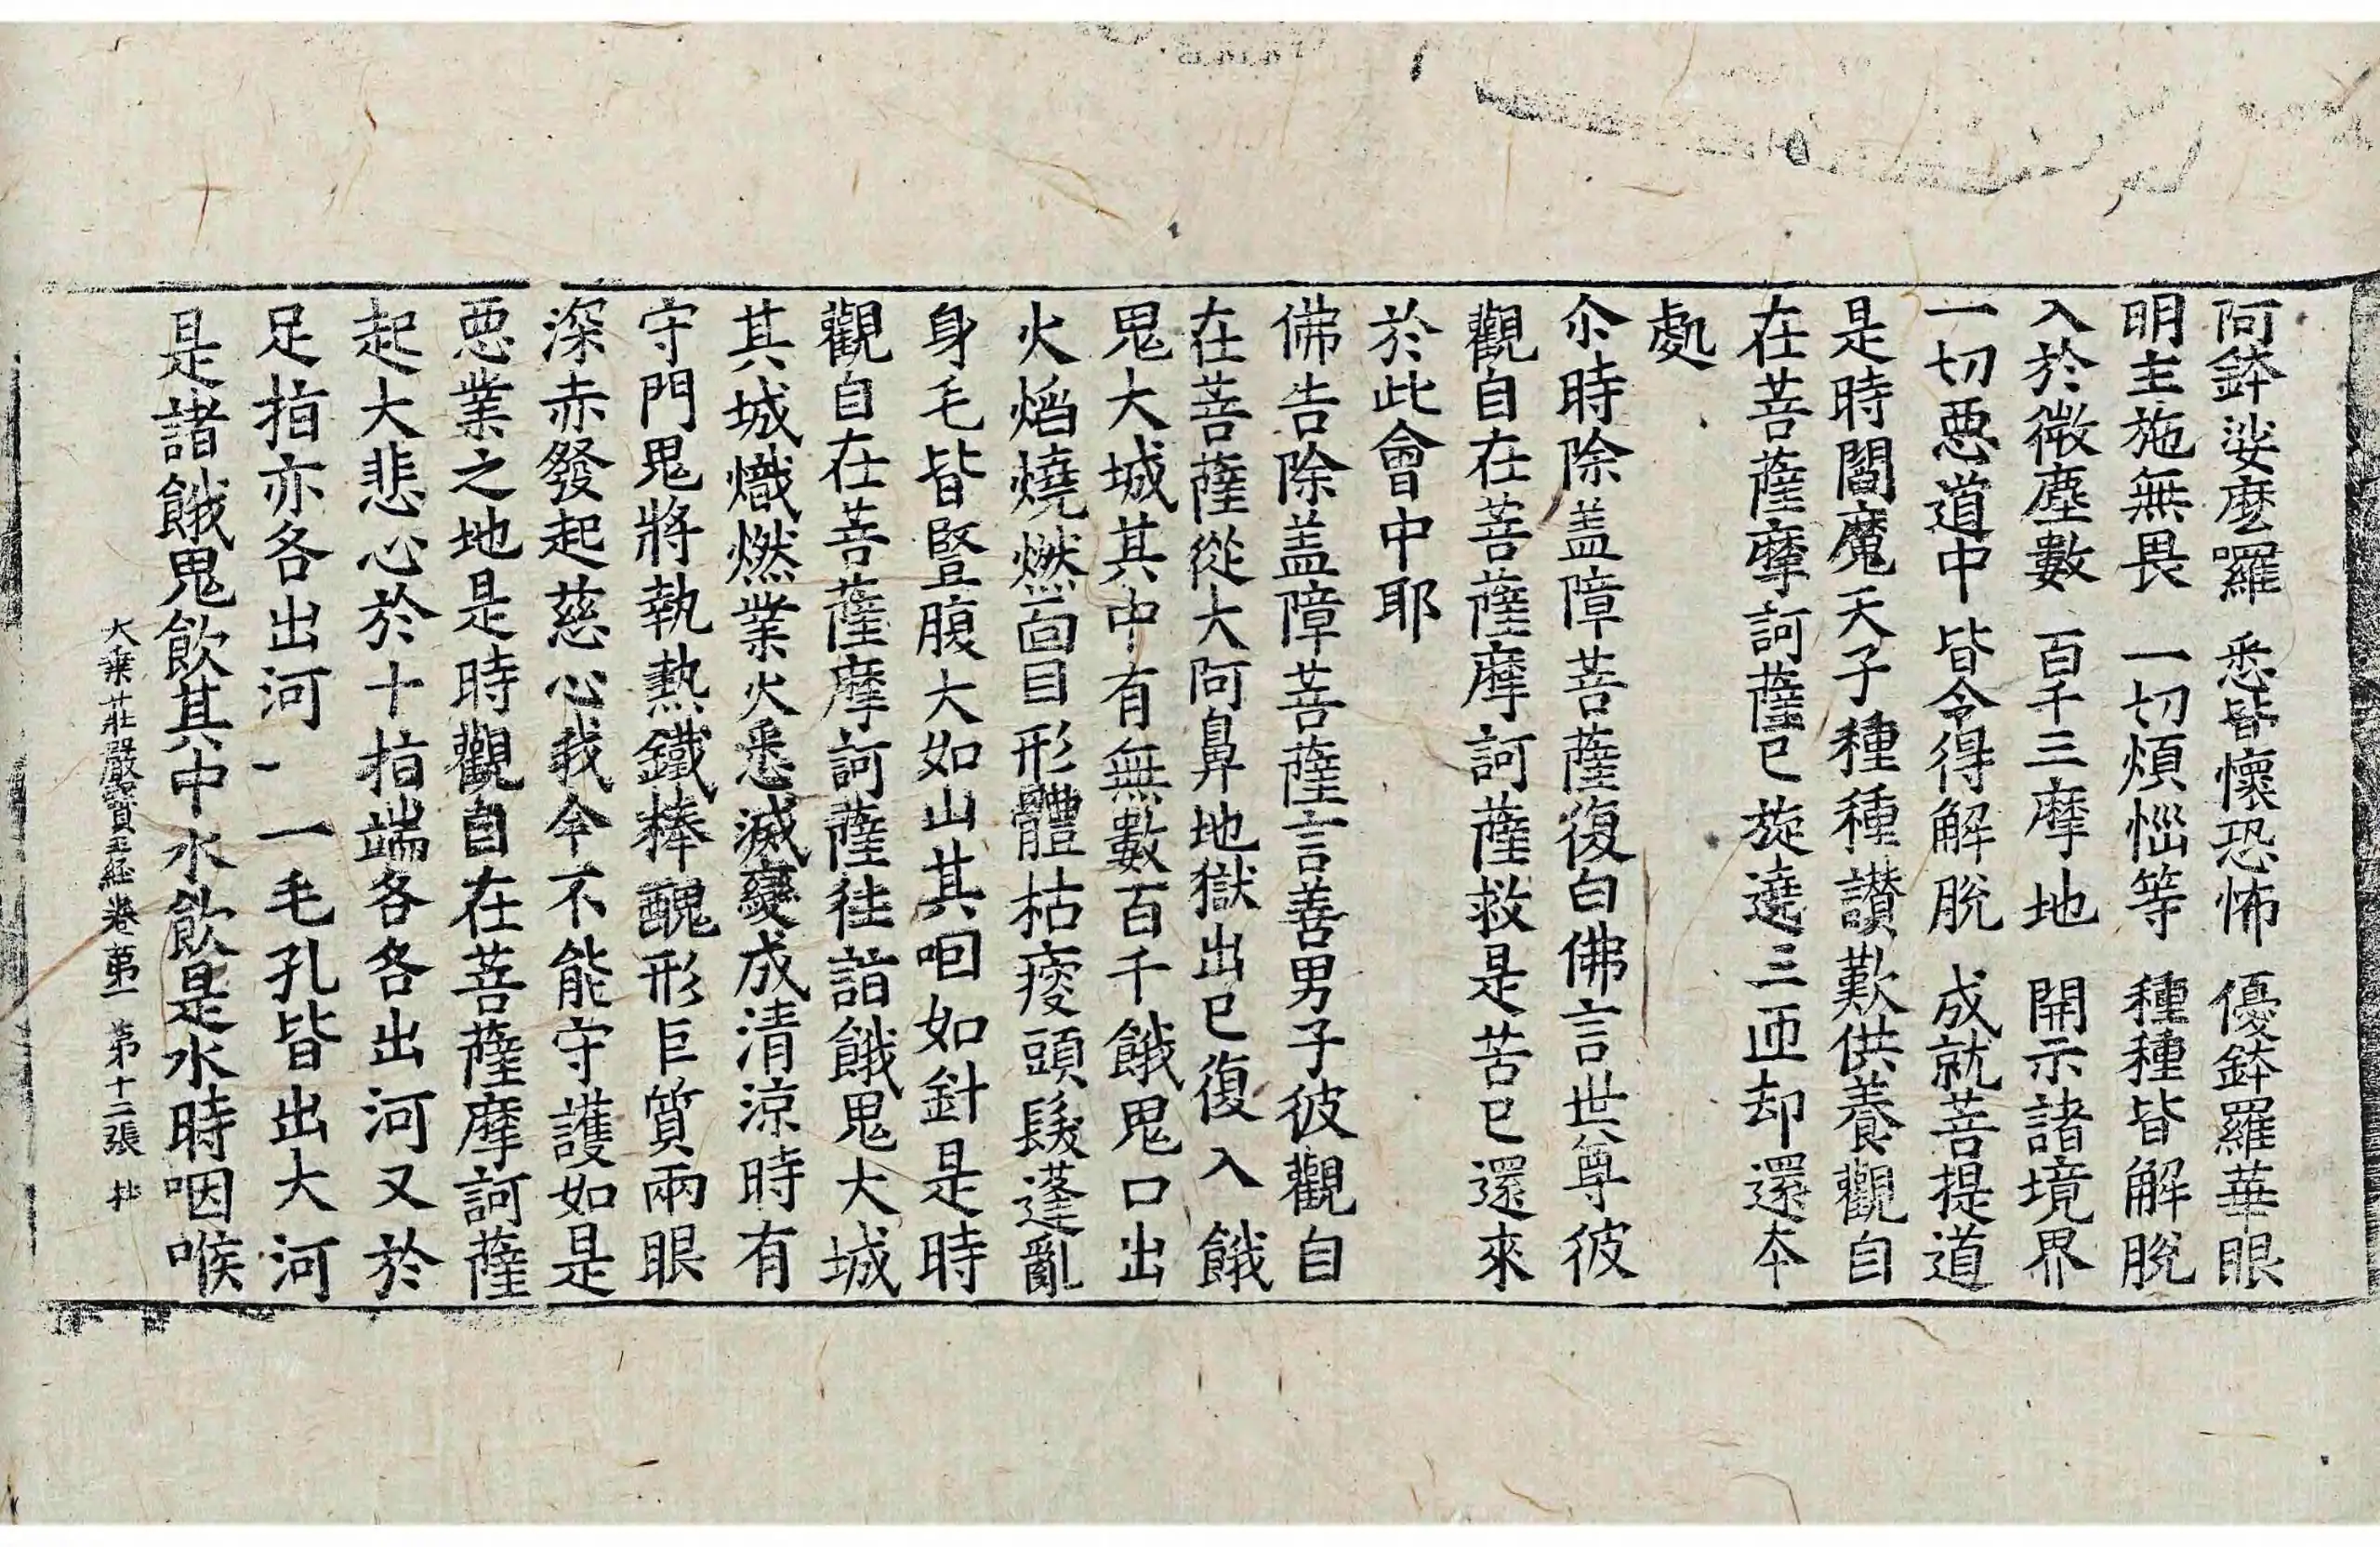 阿鉢娑麽囉　悉皆懷恐怖　優鉢羅華眼
明主施無畏　一切煩惱等　種種皆解脫
入於微塵數　百千三摩地　開示諸境界
一切惡道中　皆令得解脫　成就菩提道
是時閻魔天子種種讃歎供養觀自
在菩薩摩訶薩已旋遶三匝却還本
處
尒時除盖障菩薩復白佛言世尊彼
觀自在菩薩摩訶薩救是苦已還來
於此會中耶
佛告除盖障菩薩言善男子彼觀自
在菩薩從大阿鼻地獄出已復入餓
鬼大城其中有無數百千餓鬼口出
火焰燒燃面目形體枯瘦頭髮蓬亂
身毛皆竪腹大如山其咽如針是時
觀自在菩薩摩訶薩往詣餓鬼大城
其城熾燃業火悉滅變成清涼時有
守門鬼將執熱鐵棒醜形巨質兩眼
深赤發起慈心我今不能守護如是
惡業之地是時觀自在菩薩摩訶薩
起大悲心於十指端各各出河又於
足指亦各出河一一毛孔皆出大河
是諸餓鬼飲其中水飲是水時咽喉
大乗莊嚴寳王經卷第一　第十二張